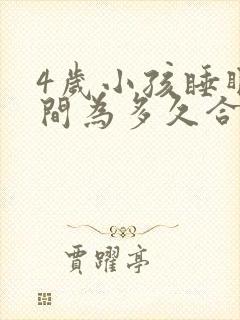 4歲小孩睡眠
間為多久合
賈躍亭